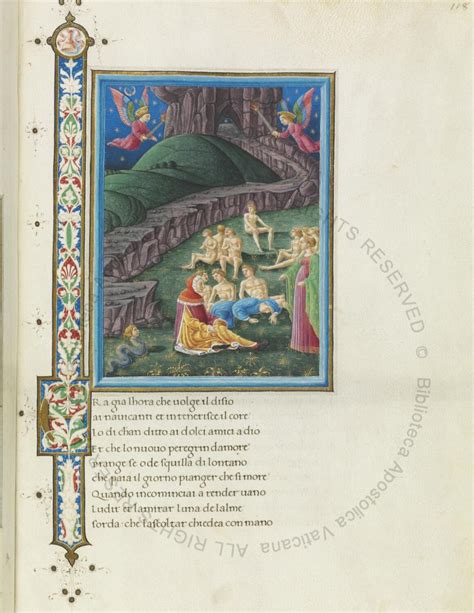 118
E
R a gia lhora che volge il disio
ai nauicanti et intenerisce il core
lo di chan ditto ai dolci amici adio
Et che lo nuouo peregrin damore
punge se ode squilla di lontano
che paia il giorno pianger che si more
Quando incominciai a render uano
ludir et a mirar una delalme
sorda che lascoltar chiedea con mano
RIGHTS RESERVED © Biblioteca Apostolica Vaticana ALL RIGHTS